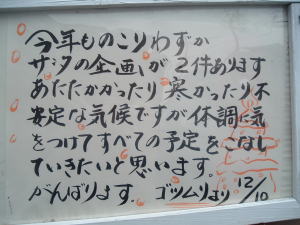 今年ものこりわずか
ザ・タの企画が2件あります
あたたかかったり寒かったり不
安定な気候ですが体調に気
をつけてすべての予定をこなし
ていきたいと思います。
がんばります。ゴツムリより 12/10